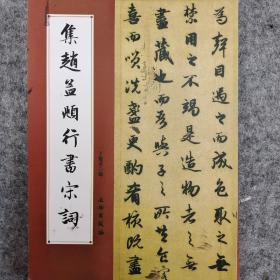 集趙孟頫行書宋詞
為聲目遇之而成色取之無
禁用之不竭是造物者之無
盡藏也而吾與子之所共客
喜而笑洗盞更酌肴核既盡